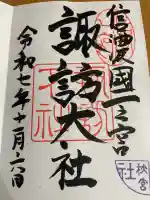 信濃國一之宮
諏訪大社
令和七年十一月六日
秋宮
社